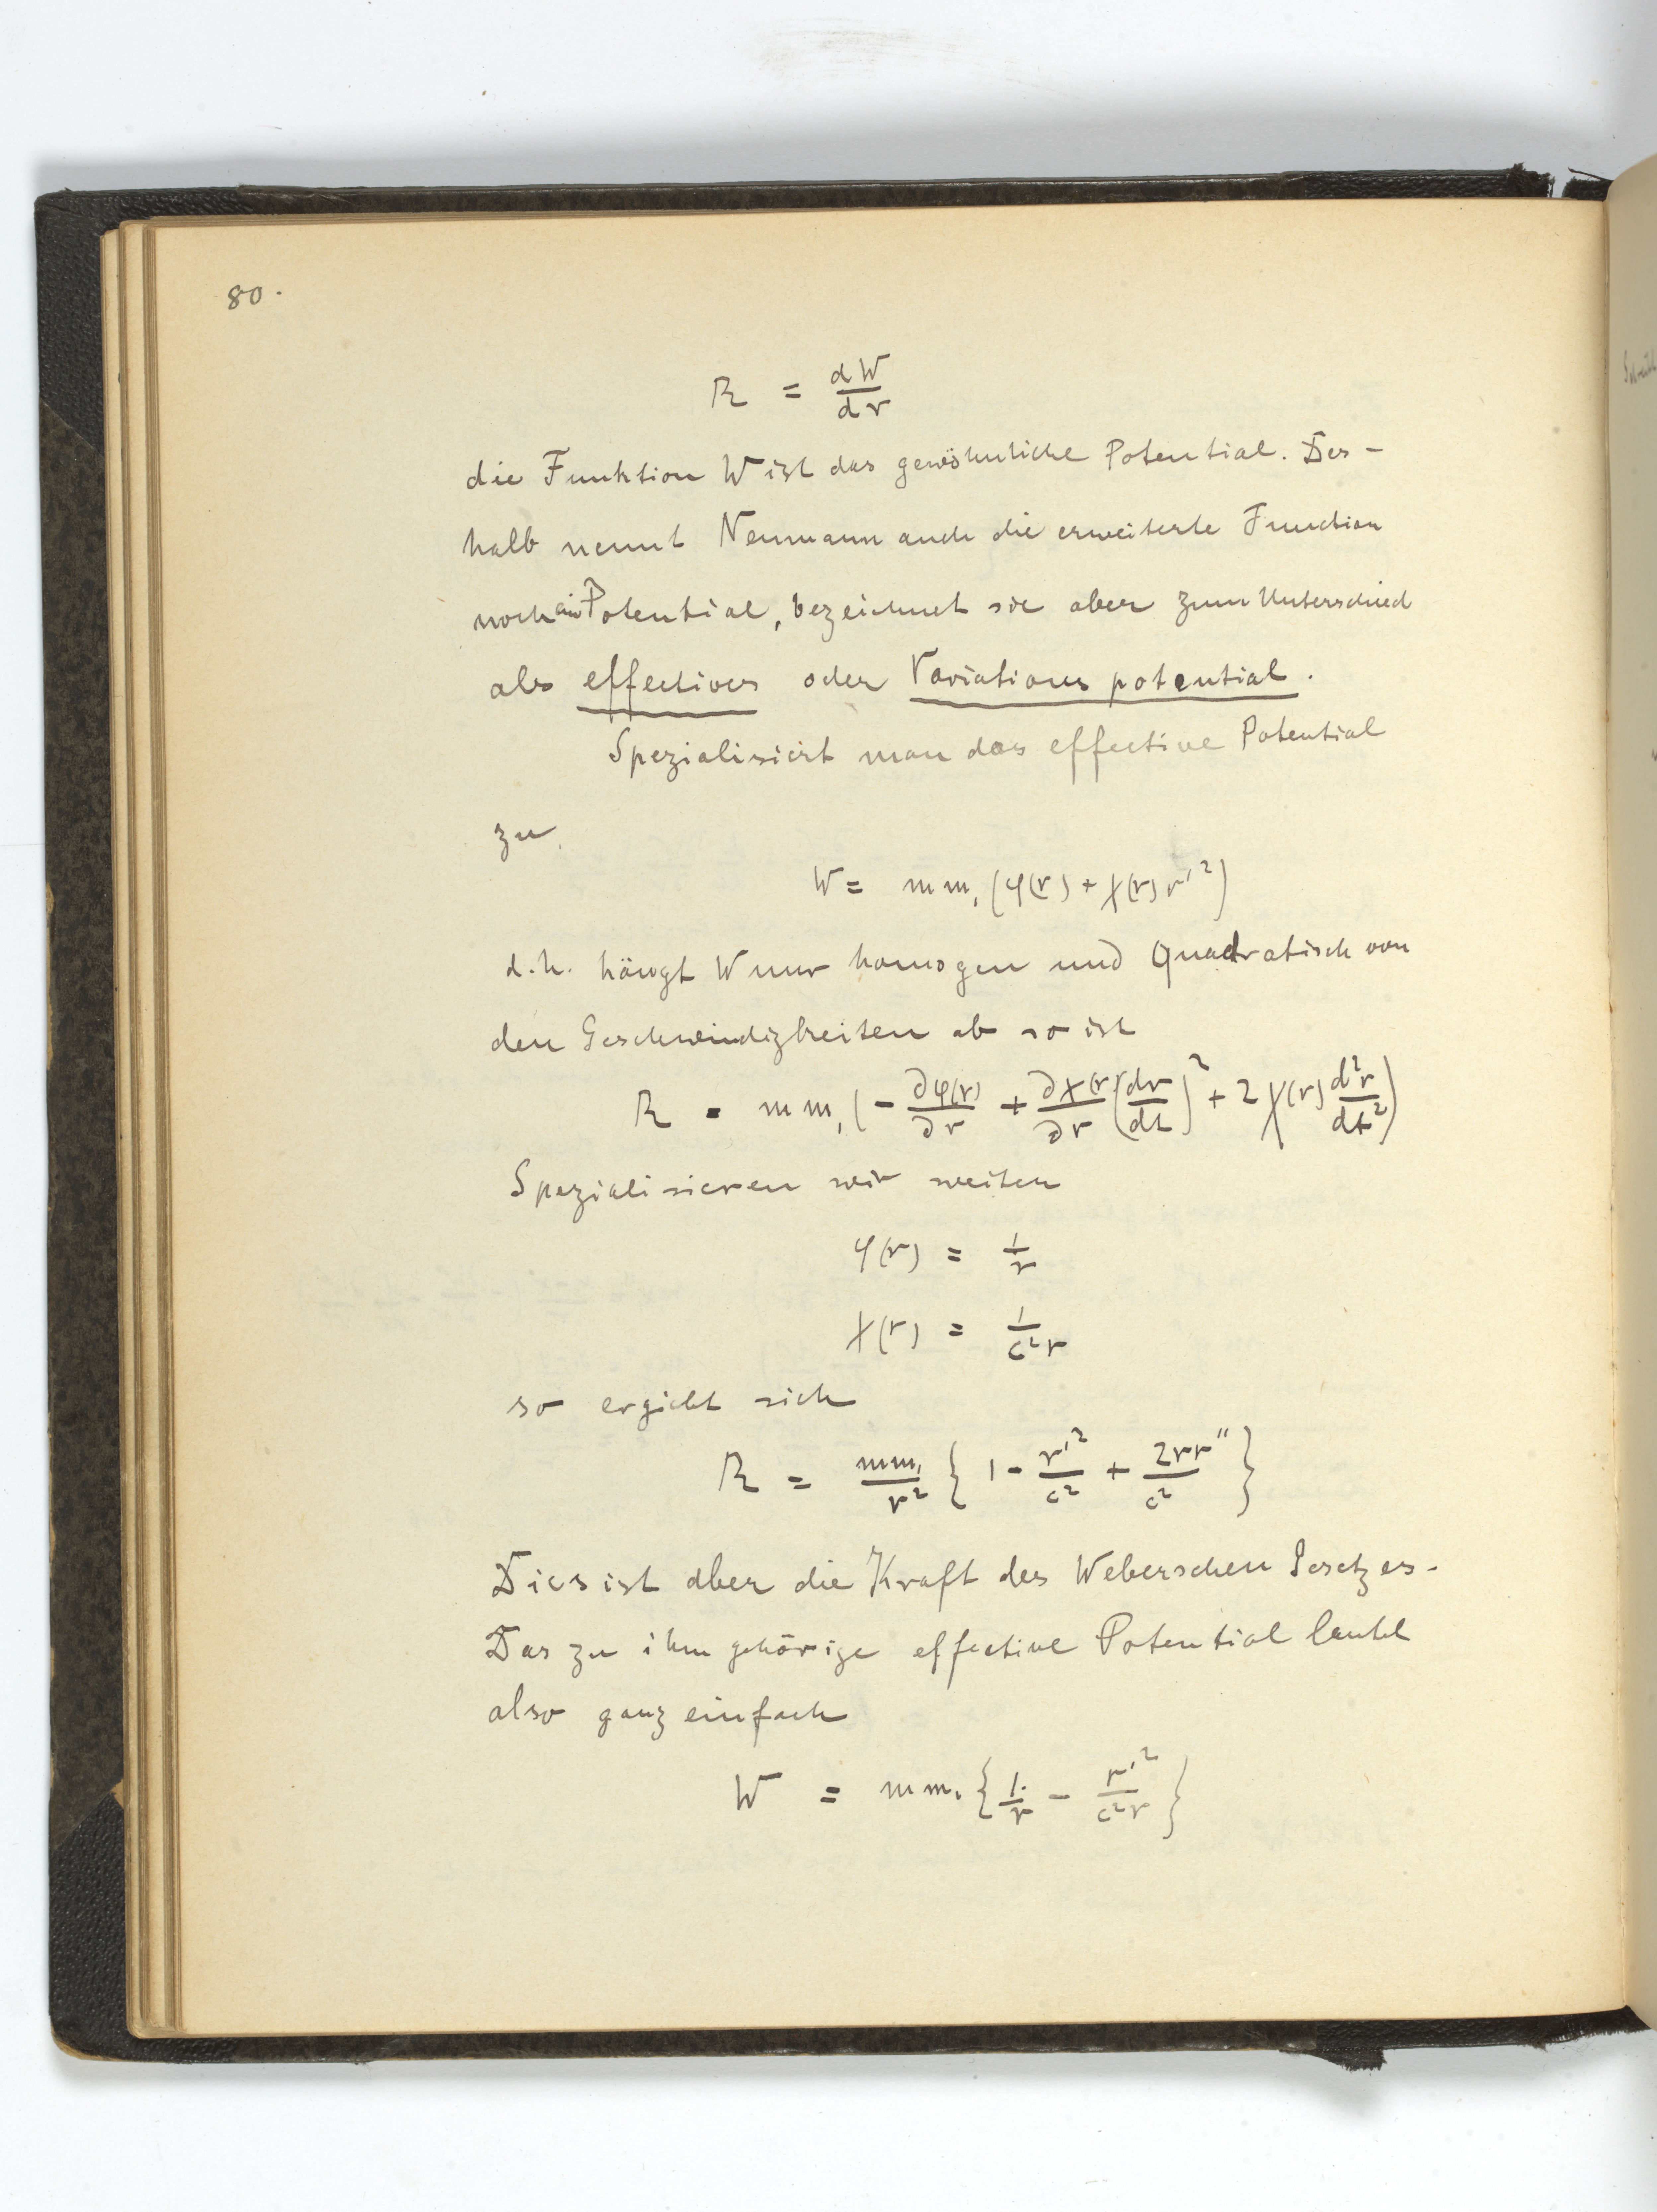 80.
R = dW/dr
die Funktion W ist das gewöhnliche Potential. Des-
halb nennt Neumann auch die erweiterte Function
noch ein Potential, bezeichnet sie aber zum Unterschied
als effectives oder Variations potential.
Spezialisirt man das effective Potential
zu
W = mm₁ (φ(r) + χ(r) r'²)
d.h. hängt W nur homogen und Quadratisch von
den Geschwindigkeiten ab so ist
R = mm₁ (- ∂φ(r)/∂r + ∂χ(r)/∂r (dr/dt)² + 2 χ(r) d²r/dt²)
Spezialisieren wir weiter
φ(r) = 1/r
χ(r) = 1/c²r
so ergiebt sich
R = mm₁/r² { 1 - r'²/c² + 2rr''/c² }
Dies ist aber die Kraft des Weberschen Gesetzes.
Das zu ihm gehörige effective Potential lautet
also ganz einfach
W = mm₁ { 1/r - r'²/c²r }